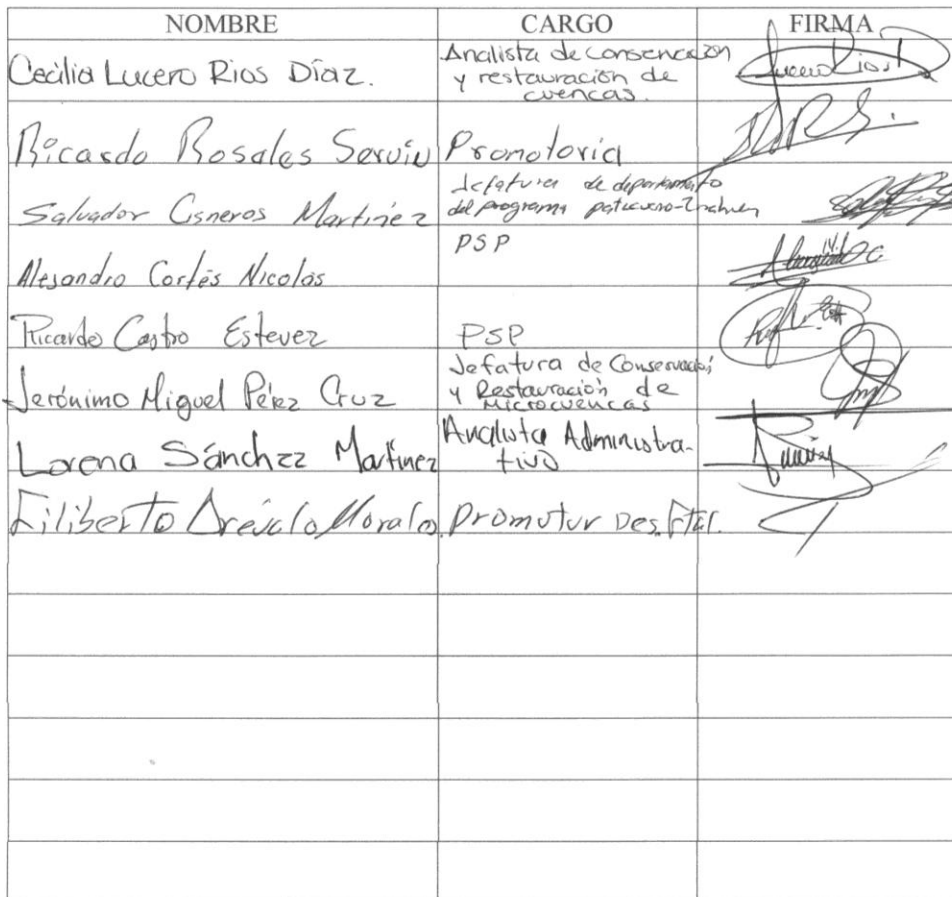 NOMBRE CARGO FIRMA
Cecilia Lucero Rios Díaz. Analista de conservación
y restauración de
cuencas.
Lucero Rios D
Ricardo Rosales Servin Promotoria
Salvador Cisneros Martínez Jefatura de departamento
del programa
Alejandro Cortés Nicolás PSP
Ricardo Castro Estevez PSP
Jerónimo Miguel Pérez Cruz Jefatura de Conservación
y Restauración de
Microcuencas
Lorena Sánchez Martinez Analista Administra-
tivo
Filiberto Arévalo Morales. Promotor Des. Ftal.